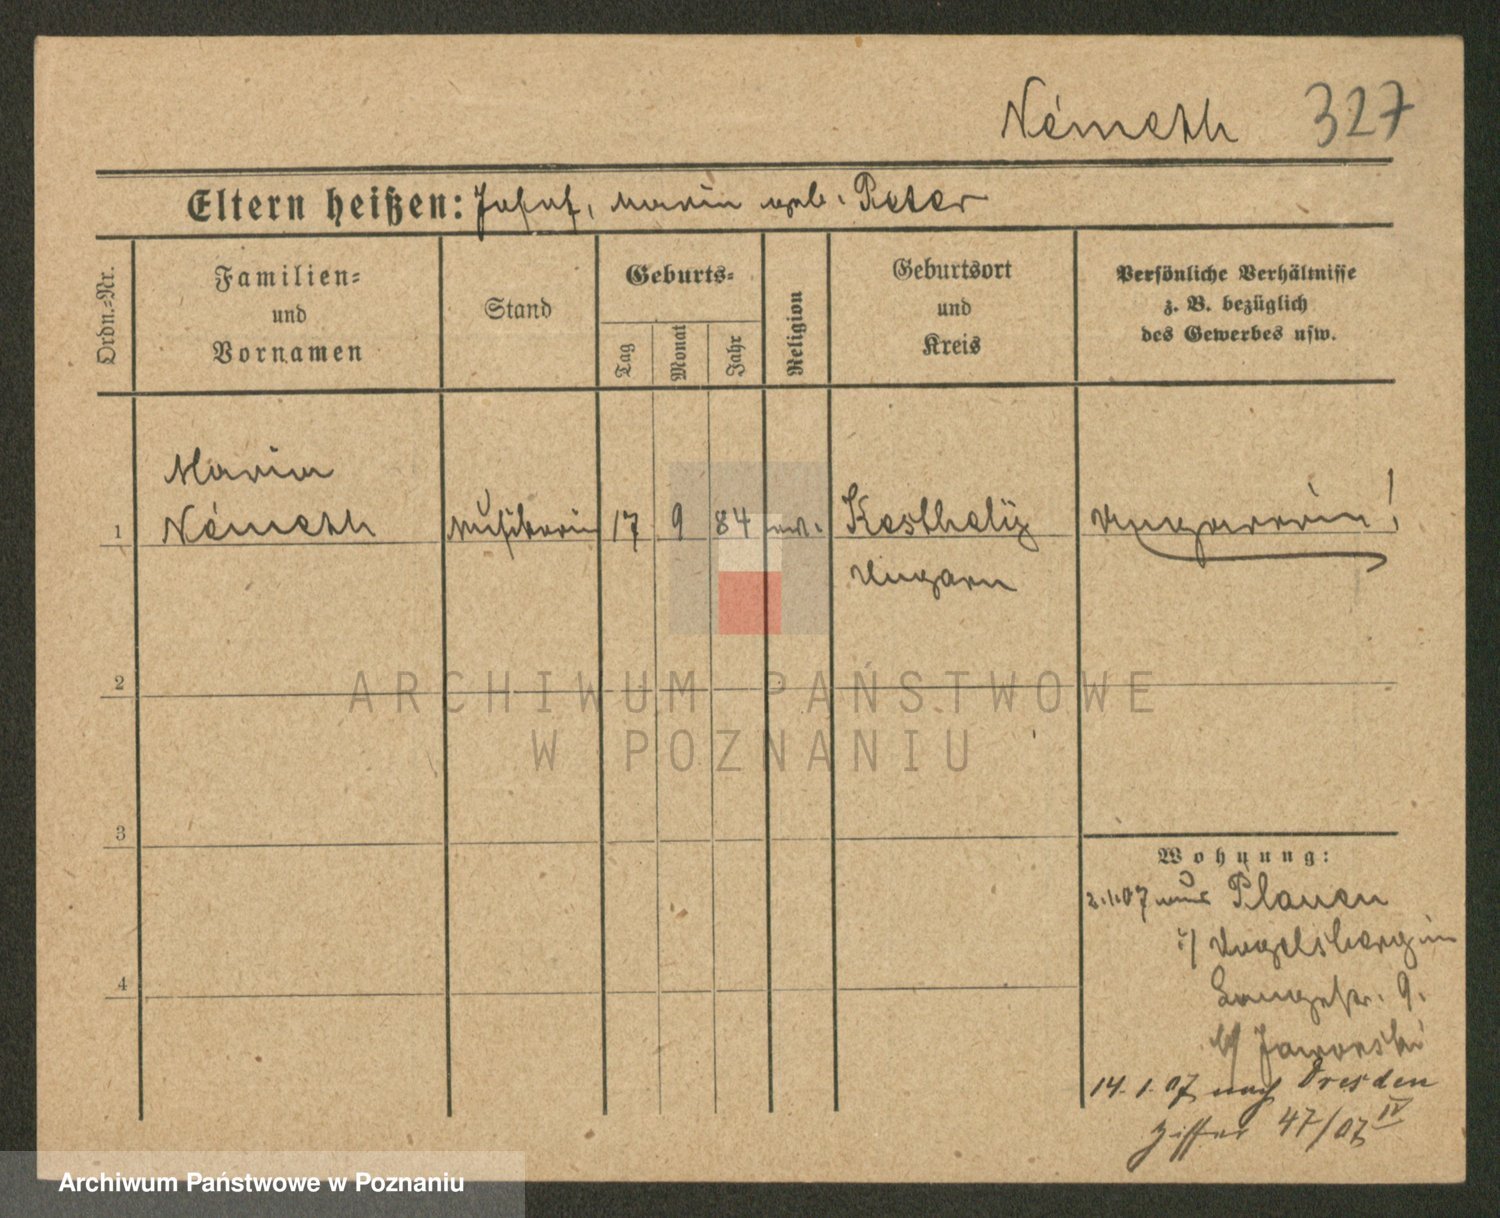 Németh 327
Eltern heißen: Josef, Maria geb. Peter
Ordn.-Nr.
Familien-
und
Vornamen
Stand
Geburts-
Tag
Monat
Jahr
Religion
Geburtsort
und
Kreis
Persönliche Verhältnisse
z. B. bezüglich
des Gewerbes usw.
Maria
1 Németh Musikerin 17 9 84 Kesthelÿ Ungarin!
Ungarn
2
ARCHIWUM PAŃSTWOWE
W POZNANIU
3
Wohnung:
2.1.07 aus Plauen
i/ Vogelsberg in
4
Langestr. 9.
b/ Jaworski
14.1.07 nach Dresden
Ziffer 47/07 IV
Archiwum Państwowe w Poznaniu